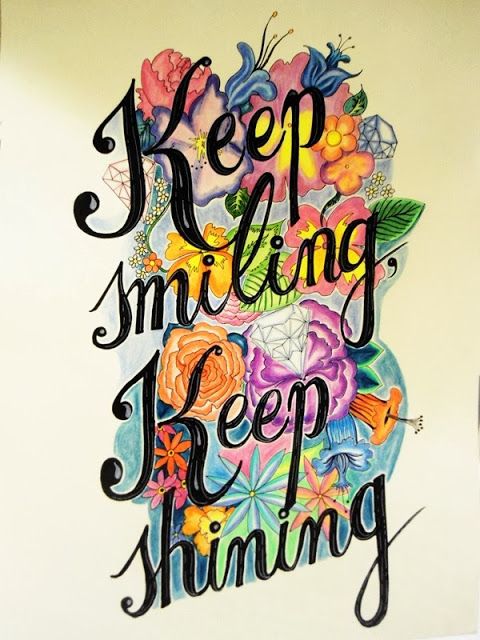 Keep
smiling,
Keep
shining